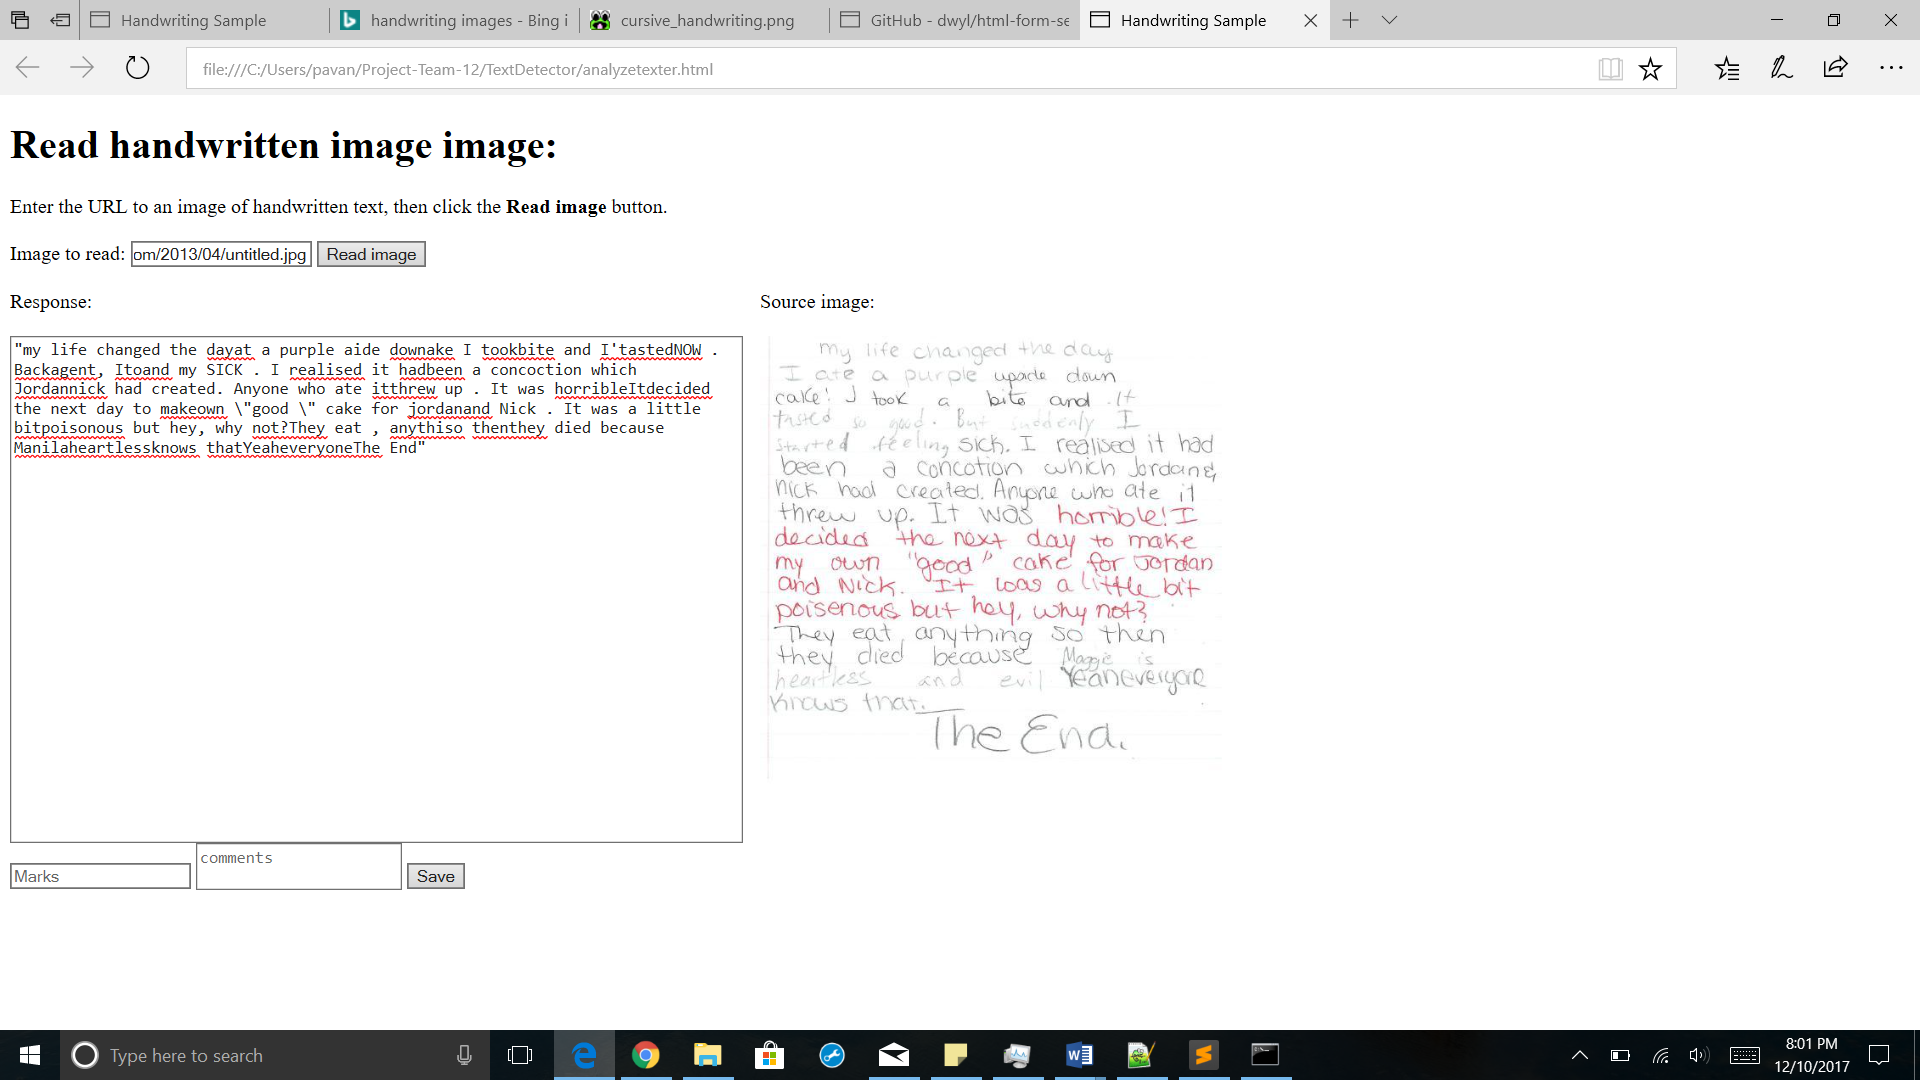 Handwriting Sample
handwriting images - Bing i
cursive_handwriting.png
GitHub - dwyl/html-form-se
Handwriting Sample
file:///C:/Users/pavan/Project-Team-12/TextDetector/analyzetexter.html
Read handwritten image image:
Enter the URL to an image of handwritten text, then click the Read image button.
Image to read: om/2013/04/untitled.jpg Read image
Response:
"my life changed the dayat a purple aide downake I tookbite and I'tastedNOW .
Backagent, Itoand my SICK . I realised it hadbeen a concoction which
Jordannick had created. Anyone who ate itthrew up . It was horribleItdecided
the next day to makeown \"good \" cake for jordanand Nick . It was a little
bitpoisonous but hey, why not?They eat , anythiso thenthey died because
Manilaheartlessknows thatYeaheveryoneThe End"
Marks
comments
Save
Source image:
my life changed the day
I ate a purple upside down
cake! I took a bite and it
tasted so good. But suddenly I
started feeling sick. I realised it had
been a concotion which Jordan &
Nick had created. Anyone who ate it
threw up. It was horrible! I
decided the next day to make
my own "good" cake for Jordan
and Nick. It was a little bit
poisenous but hey, why not?
They eat anything so then
they died because Maggie is
heartless and evil Yeah everyone
knows that.
The End.
Type here to search
8:01 PM
12/10/2017